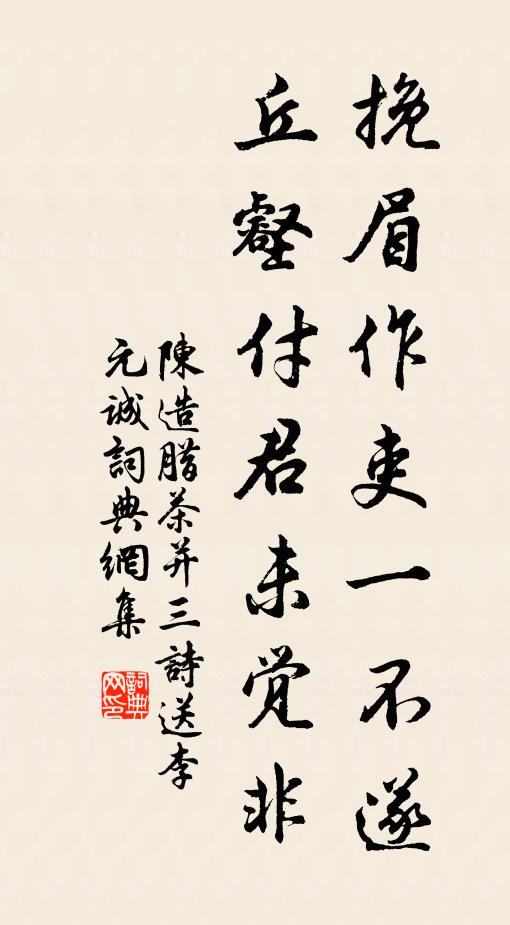 挽眉作吏一不遂
丘壑付君未觉非
陳造腊茶并三詩送李
元诚詞典網集
詞典网印